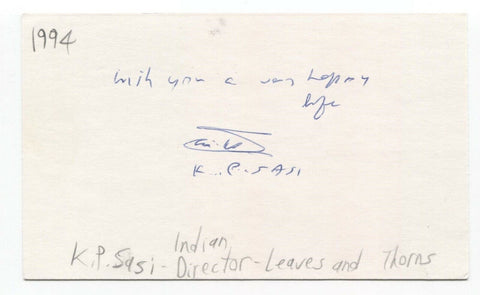 1994
Wish you a very happy
life
K.P.SASI
K.P. Sasi - Indian Director - Leaves and Thorns